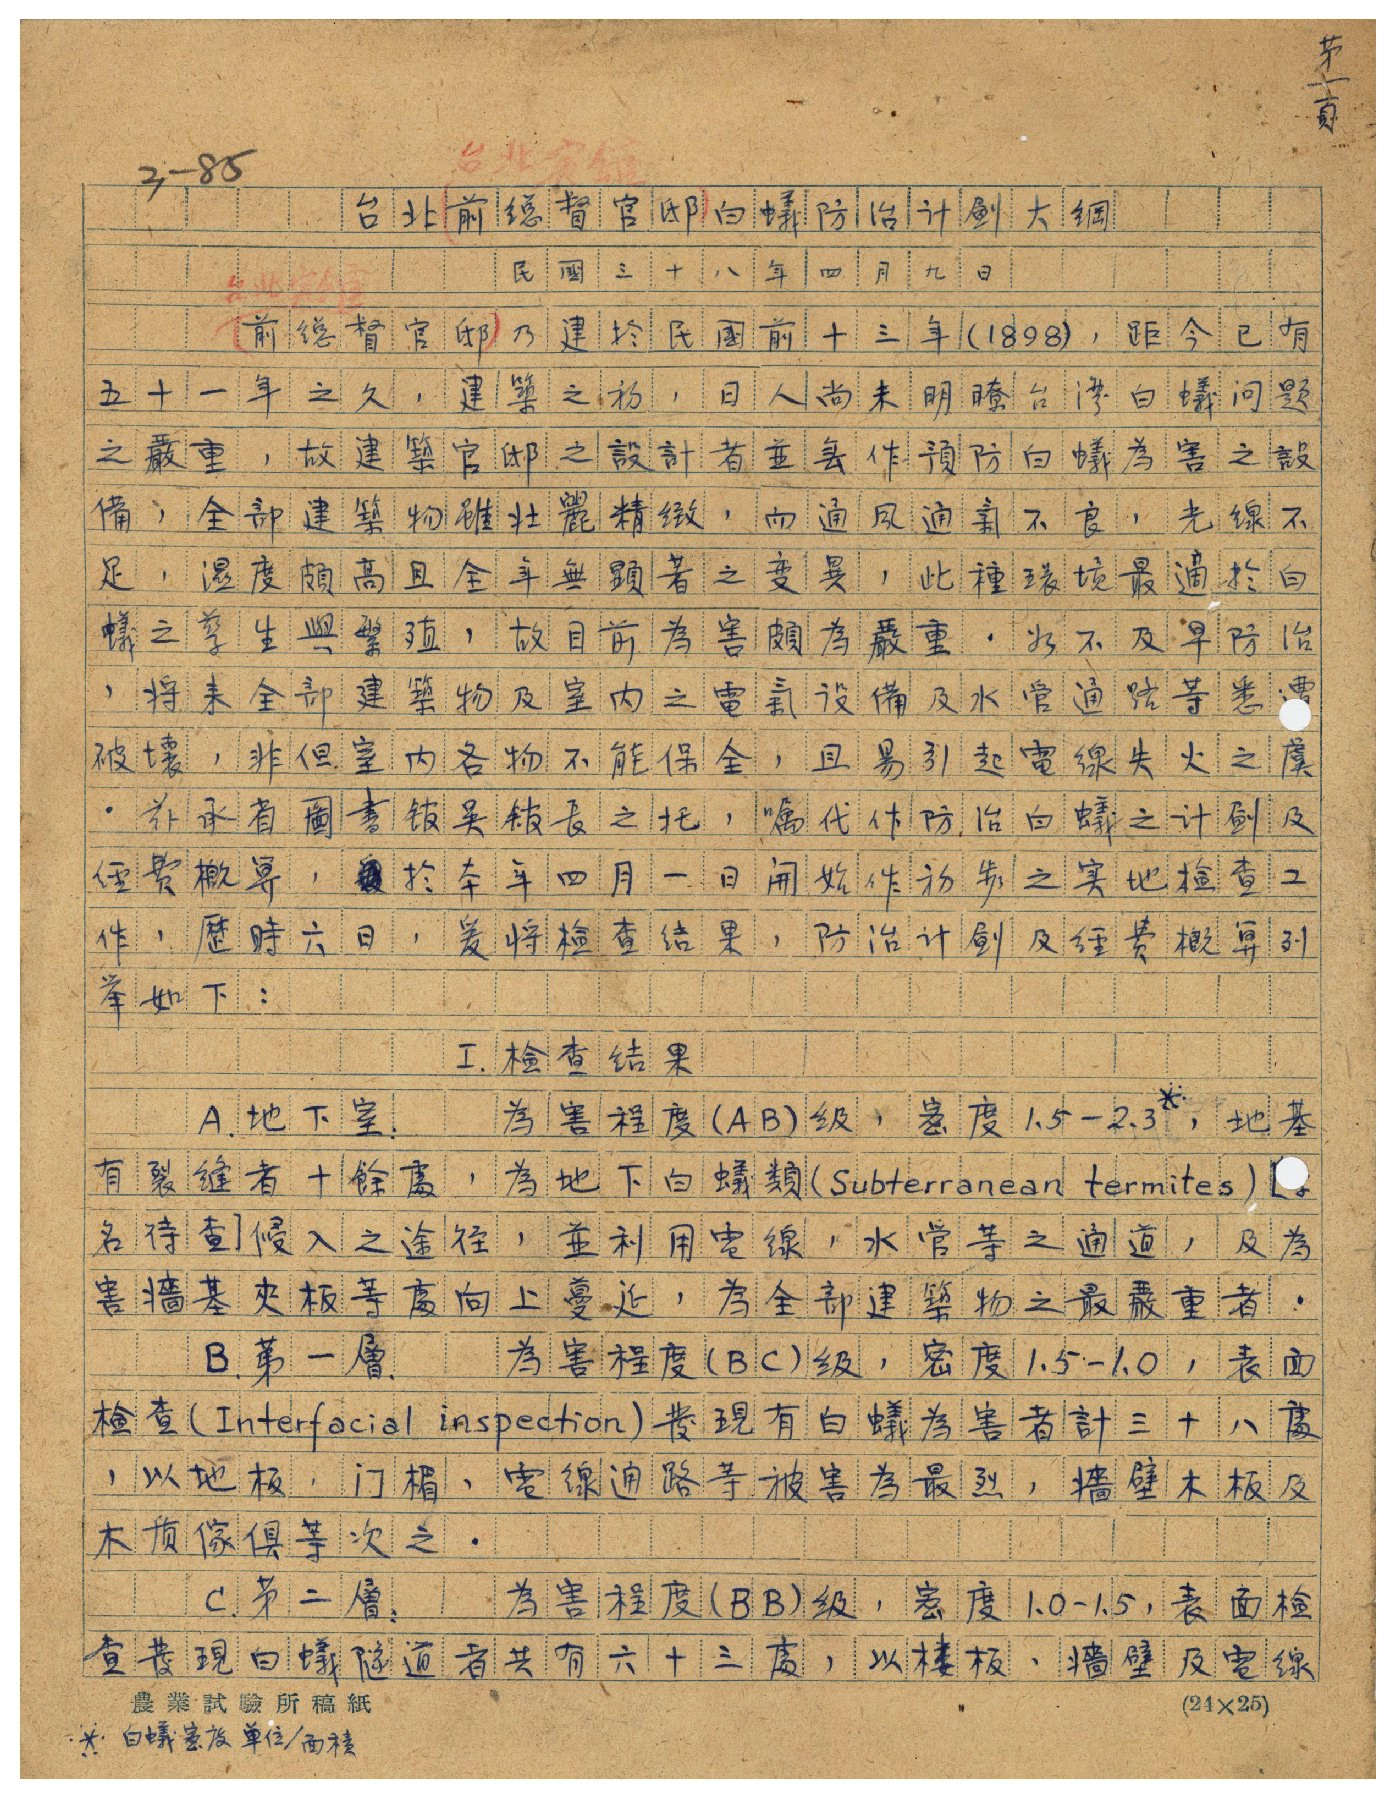 第一頁
3-85
台北賓館
台北(前總督官邸)白蟻防治计劃大綱
民國三十八年四月九日
台北賓館
(前總督官邸)乃建扵民國前十三年(1898)，距今已有
五十一年之久，建築之初，日人尚未明瞭台湾白蟻问题
之嚴重，故建築官邸之設計者並無作預防白蟻為害之設
備，全部建築物雖壮麗精緻，而通風通氣不良，光線不
足，濕度頗高且全年無顕著之变異，此種環境最適扵白
蟻之孳生與繁殖，故目前為害頗為嚴重．如不及早防治
，将來全部建築物及室内之電氣设備及水管通路等悉遭
破壞，非但室内各物不能保全，且易引起電線失火之虞
．兹承省圖書舘吴舘長之托，嘱代作防治白蟻之计劃及
經費概算，扵本年四月一日開始作初步之实地检查工
作，歷時六日，爰将检查结果，防治计劃及經費概算列
举如下：
I.检查结果
A.地下室：為害程度(AB)级，密度1.5-2.3※，地基
有裂縫者十餘處，為地下白蟻類(Subterranean termites)[
名待查]侵入之途径，並利用電線，水管等之通道，及為
害牆基夾板等處向上蔓延，為全部建築物之最嚴重者．
B.第一層：為害程度(BC)级，密度1.5-1.0，表面
检查(Interfacial inspection)發現有白蟻為害者計三十八處
，以地板，门楣、電線通路等被害為最烈，牆壁木板及
木质傢俱等次之．
C.第二層：為害程度(BB)级，密度1.0-1.5，表面检
查發現白蟻隧道者共有六十三處，以楼板、牆壁及電線
農業試驗所稿紙
(24×25)
※ 白蟻密度 單位/面積